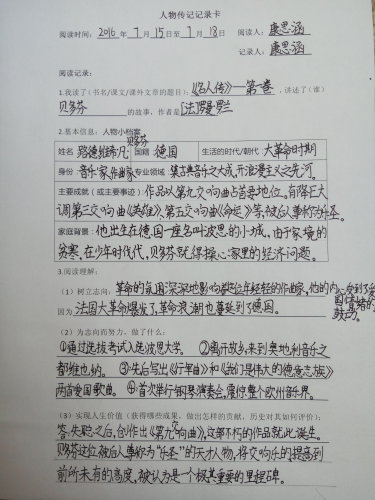 人物传记记录卡
阅读时间：2016 年 7 月 15 日至 7 月 18 日 阅读人：康思涵
记录人：康思涵
阅读记录：
1.我读了（书名/课文/课外文章的题目）：《名人传》 第一卷 ，讲述了（谁）
贝多芬 的故事，作者是 [法]罗曼·罗兰
2.基本信息：人物小档案
姓名 路德维希·凡·贝多芬 国籍 德国 生活的时代/朝代 大革命时期
身份 音乐家、作曲家 专业领域 集古典音乐之大成，开浪漫主义之先河。
主要成就（或主要事迹）：作品以第九交响曲占首要地位。有降E大
调第三交响曲《英雄》、第五交响曲《命运》等，被后人尊称为乐圣。
家庭背景：他出生在德国一座名叫波恩的小城，由于家境的
贫寒，在少年时代代，贝多芬就得操心家里的经济问题。
3.阅读理解：
（1）树立志向：革命的氛围深深地影响着这位年轻的作曲家，他的内心受到了爱国情绪的鼓动。
因为 法国大革命爆发了，革命浪潮也蔓延到了德国。
（2）为志向而努力，做了什么：
①通过选拔考试入选波恩大学。 ②离开故乡，来到奥地利音乐之
都维也纳。 ③先后写出《行军曲》和《我们是伟大的德意志族》
两首爱国歌曲。 ④首次举行钢琴演奏会，震惊整个欧州音乐界。
（3）实现人生价值（获得哪些成果，做出怎样的贡献，历史对其如何评价）：
答：失聪之后，创作出《第九交响曲》，这部不朽的作品就此诞生。
贝多芬这位被后人尊称为“乐圣”的天才人物，将交响乐的提高到
前所未有的高度，被认为是一个极其重要的里程碑。